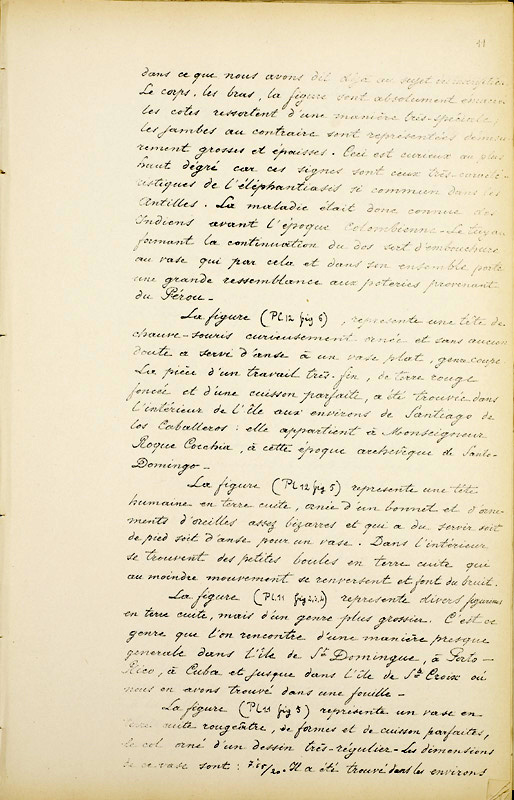 11
dans ce que nous avons dit déja au sujet
Le corps, les bras, la figure sont absolument
les cotes ressortent d'une manière très-spéciale,
les jambes au contraire sont représentées
rement grosses et épaisses. Ceci est curieux au plus
haut dégré car ces signes sont ceux très-caracté-
ristiques de l'éléphantiasis si commun dans les
Antilles. La maladie était donc connue des
Indiens avant l'époque Colombienne - Le tuyau
formant la continuation du dos sert d'embouchure
au vase qui par cela et dans son ensemble porte
une grande ressemblance aux poteries provenant
du Pérou -
La figure (Pl. 12 fig 6), représente une tête de
chauve-souris curieusement ornée et sans aucun
doute a servi d'anse à un vase plat, genre coupe
La pièce d'un travail très-fin, de terre rouge
foncée et d'une cuisson parfaite, a été trouvée dans
l'intérieur de l'île aux environs de Santiago de
los Caballeros : elle appartient à Monseigneur
Roque Cocchia, à cette époque archevêque de Santo-
Domingo -
La figure (Pl. 12 fig 5) représente une tête
humaine en terre cuite, ornée d'un bonnet et d'orne-
ments d'oreilles assez bizarres et qui a du servir soit
de pied soit d'anse pour un vase. Dans l'intérieur
se trouvent des petites boules en terre cuite qui
au moindre mouvement se renversent et font du bruit.
La figure (Pl. 11 fig 2,3,4) représente divers figurines
en terre cuite, mais d'un genre plus grossier. C'est ce
genre que l'on rencontre d'une manière presque
generale dans l'île de St Domingue, à Porto-
Rico, à Cuba et jusque dans l'île de Ste Croix où
nous en avons trouvé dans une fouille -
La figure (Pl. 13 fig 3) représente un vase en
terre cuite rougeâtre, de formes et de cuisson parfaites,
le col orné d'un dessin très-régulier - Les dimensions
de ce vase sont : Il a été trouvé dans les environs